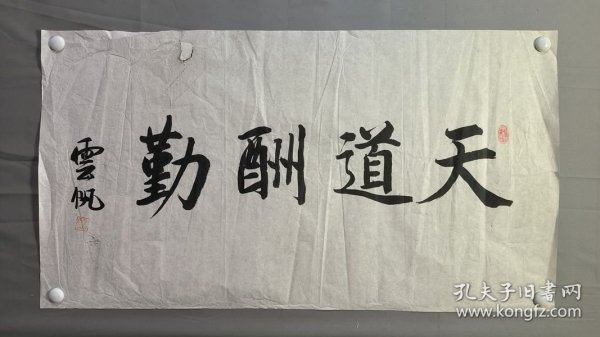 天道酬勤
雲帆
孔夫子旧书网
www.kongfz.com